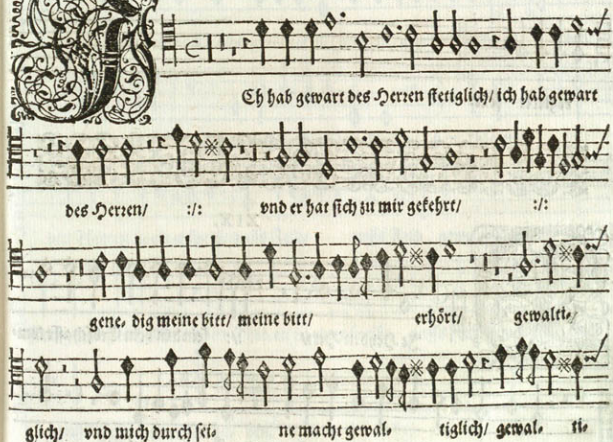 ICh hab gewart des Herren stetiglich/ ich hab gewart
des Herren/ :/: vnd er hat sich zu mir gekehrt/ :/:
gene, dig meine bitt/ meine bitt/ erhört/ gewalti-/
glich/ vnd mich durch sei- ne macht gewal- tiglich/ gewal- ti-